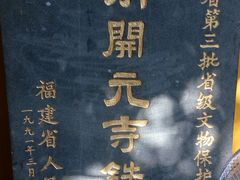 省第三批省级文物保护
開元寺鉄
福建省人
一九九一年三月